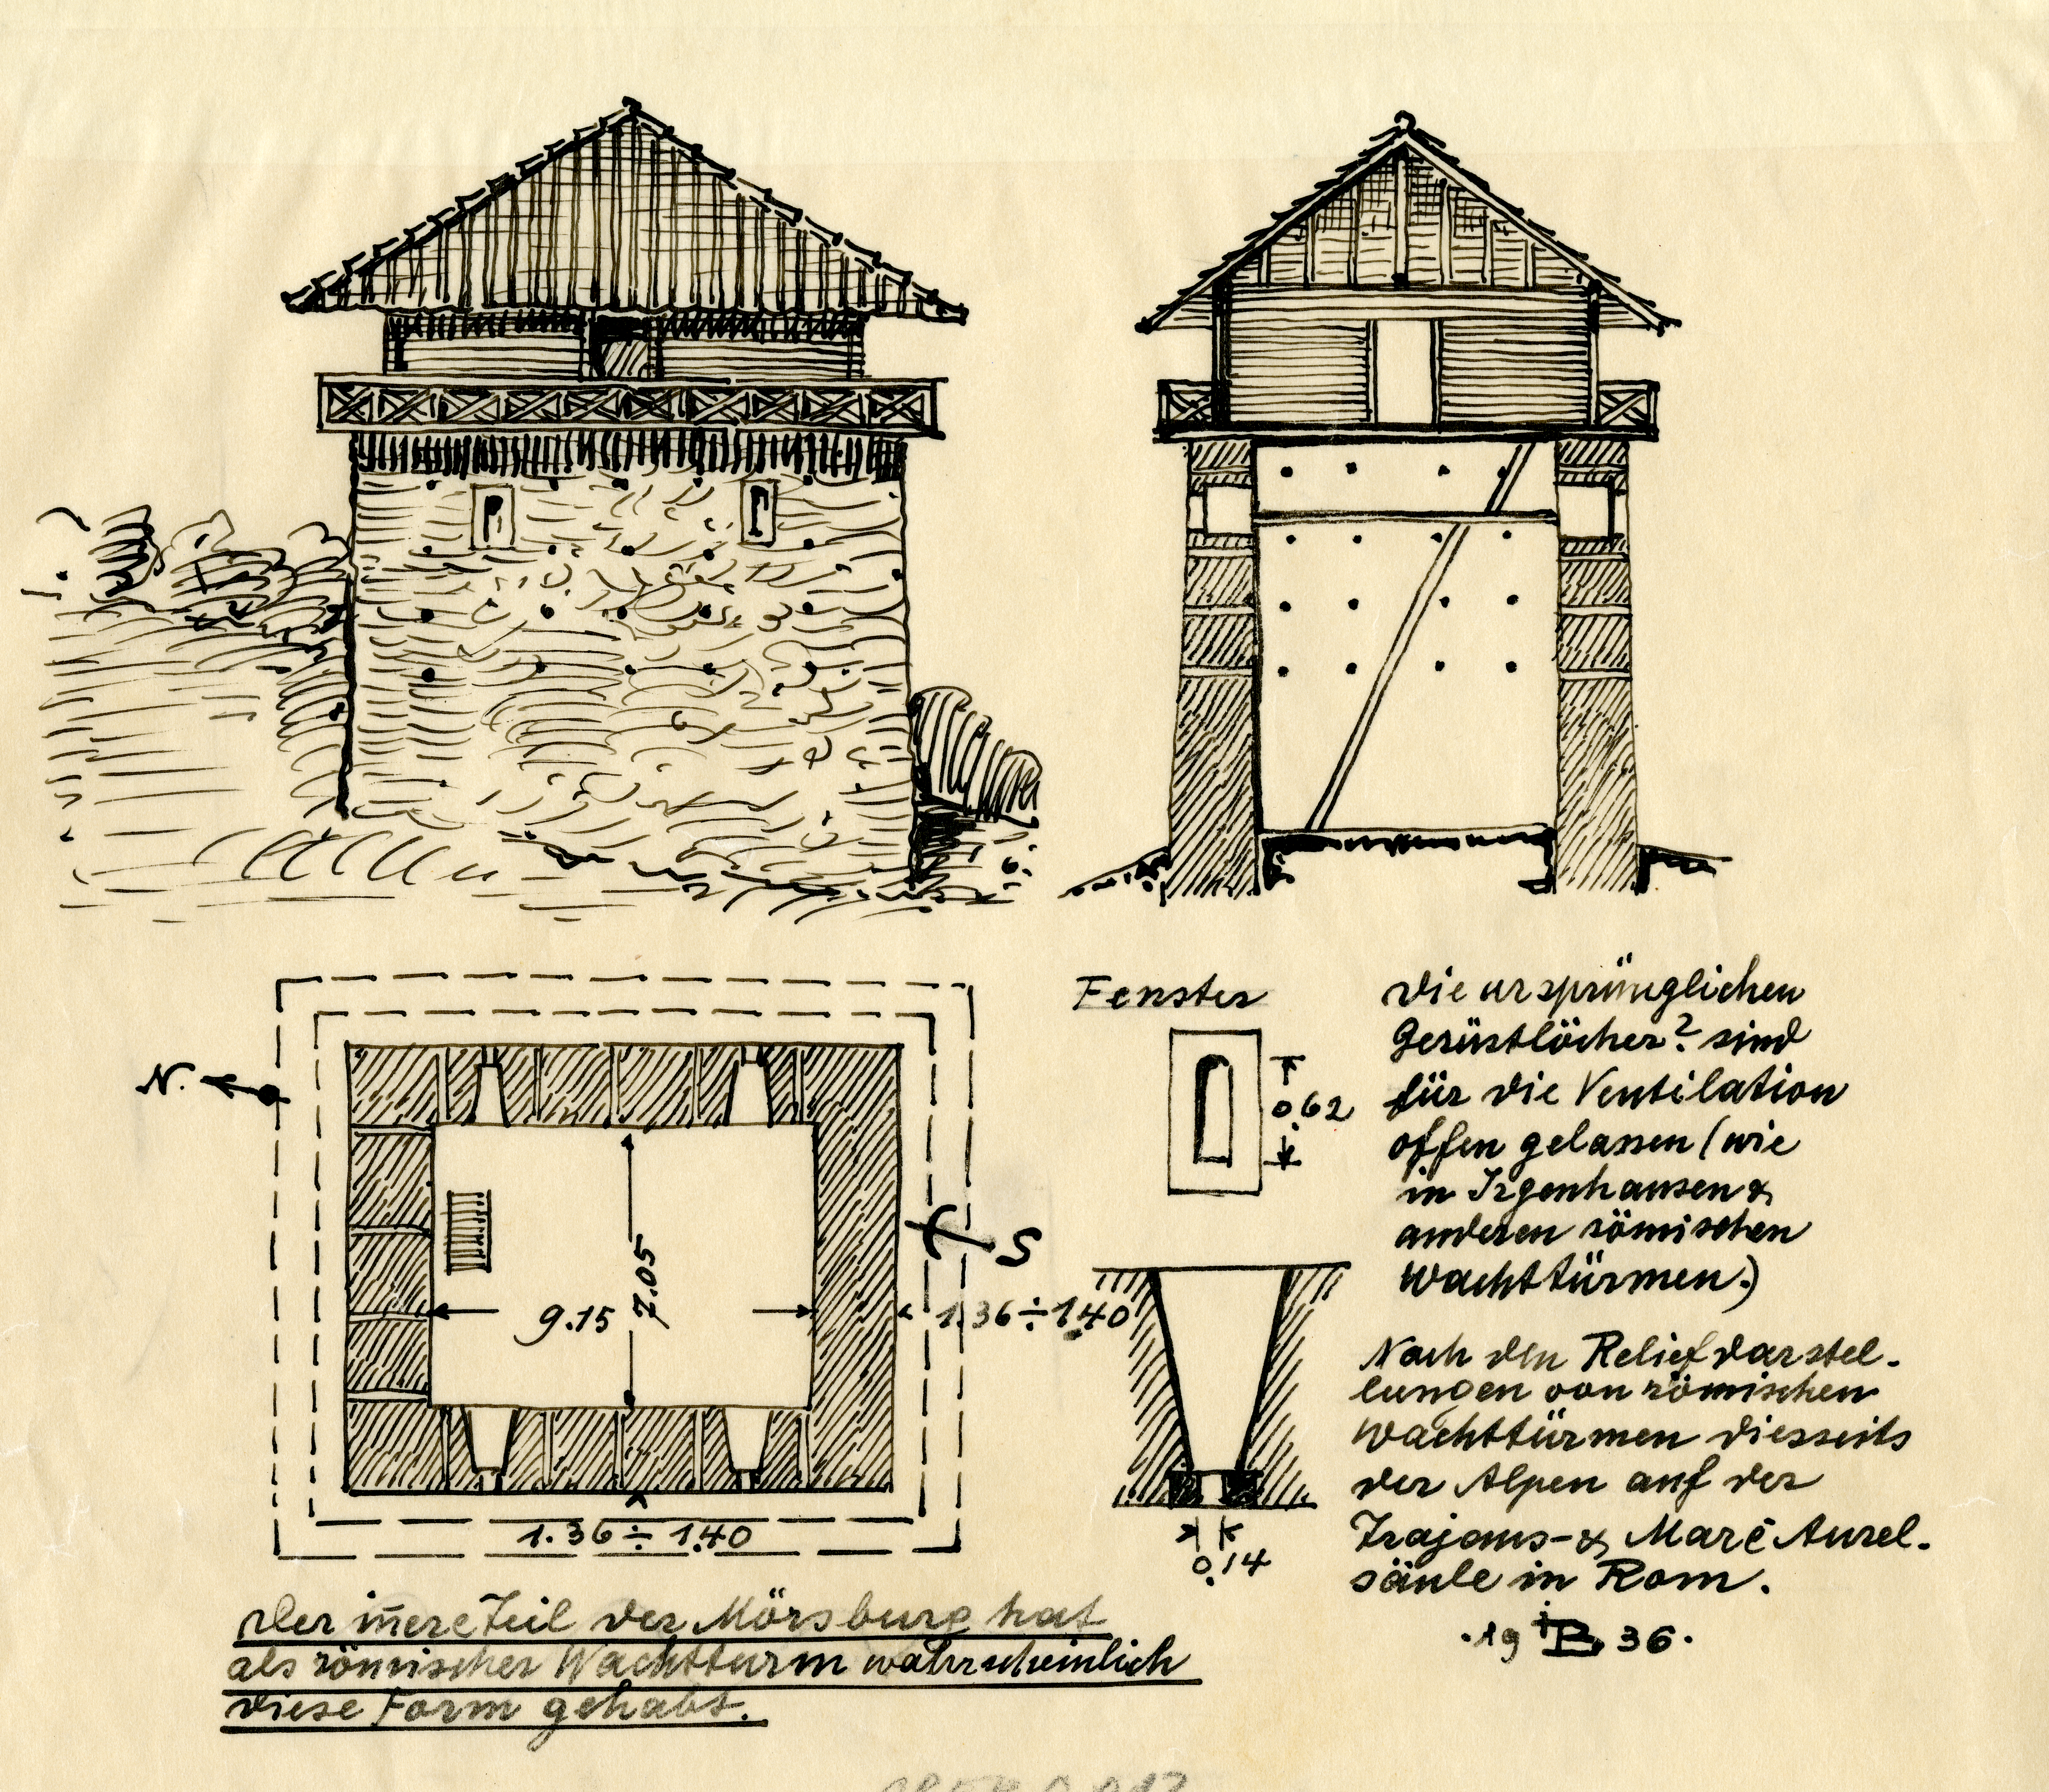 N.
S
9.15
7.05
1.36÷1.40
1.36÷1.40
Fenster
0.62
0.14
Die ursprünglichen
Gerüstlöcher? sind
für die Ventilation
offen gelassen (wie
in Irgenhausen &
anderen römischen
Wachttürmen.)
Nach den Reliefdarstel-
lungen von römischen
Wachttürmen diesseits
der Alpen auf der
Trajans- & Marc Aurel-
säule in Rom.
·19 B 36·
Der iñere Teil der Mörsburg hat
als römischer Wachtturm wahrscheinlich
diese Form gehabt.